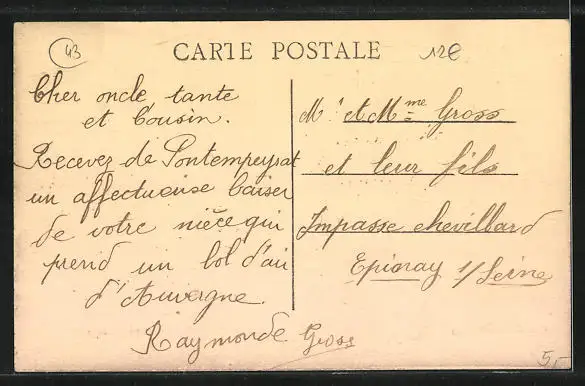 43
CARTE POSTALE
12€
Cher oncle, tante
et Cousin.
Recevez de Pontempeyrat
un affectueuse baiser
de votre nièce qui
prend un bol d'air
d'Auvergne.
Raymonde Gross
Mr et Mme Gross
et leur fils
Impasse chevillard
Epinay s/ Seine
5,-